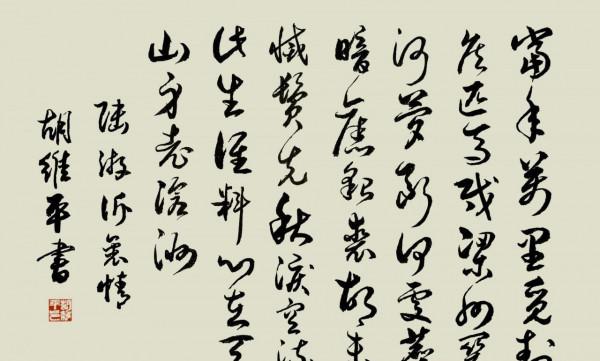 當年萬里覓封
侯匹馬戍梁州關
河夢斷何處塵
暗舊貂裘胡未
滅鬢先秋淚空流
此生誰料心在天
山身老滄洲
陸游訴衷情
胡維平書